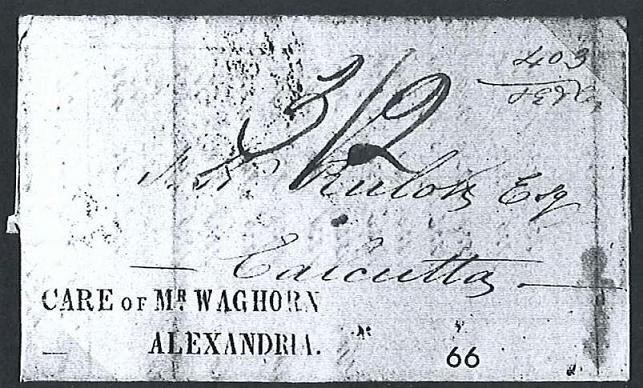 403
3/2
Esq
Calcutta
CARE OF MR WAGHORN
ALEXANDRIA.
66